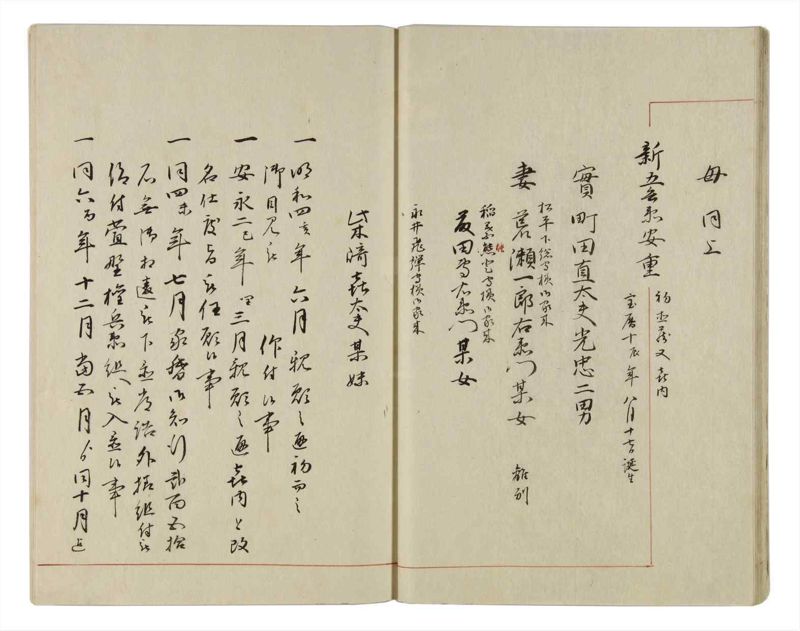 母同上
新五兵衛安重
初
又喜内
宝暦十辰年八月十七日誕生
實町田直太夫光忠二男
松平下総守様御家来
妻
瀬一郎右衛門某女
離別
稲葉能登守様御家来
田
右衛門某女
永井飛騨守様御家来
柴崎喜太夫某妹
一明和四亥年六月親願之通初而之
御目見被
仰付候事
一安永二巳年閏三月親願之通喜内と改
名仕度旨被任願候事
一同四未年七月家督御知行弐百五拾
石無御相違被下置
外様組
被
仰付
野権兵衛組
入置候事
一同六酉年十二月當酉月
同十月迄